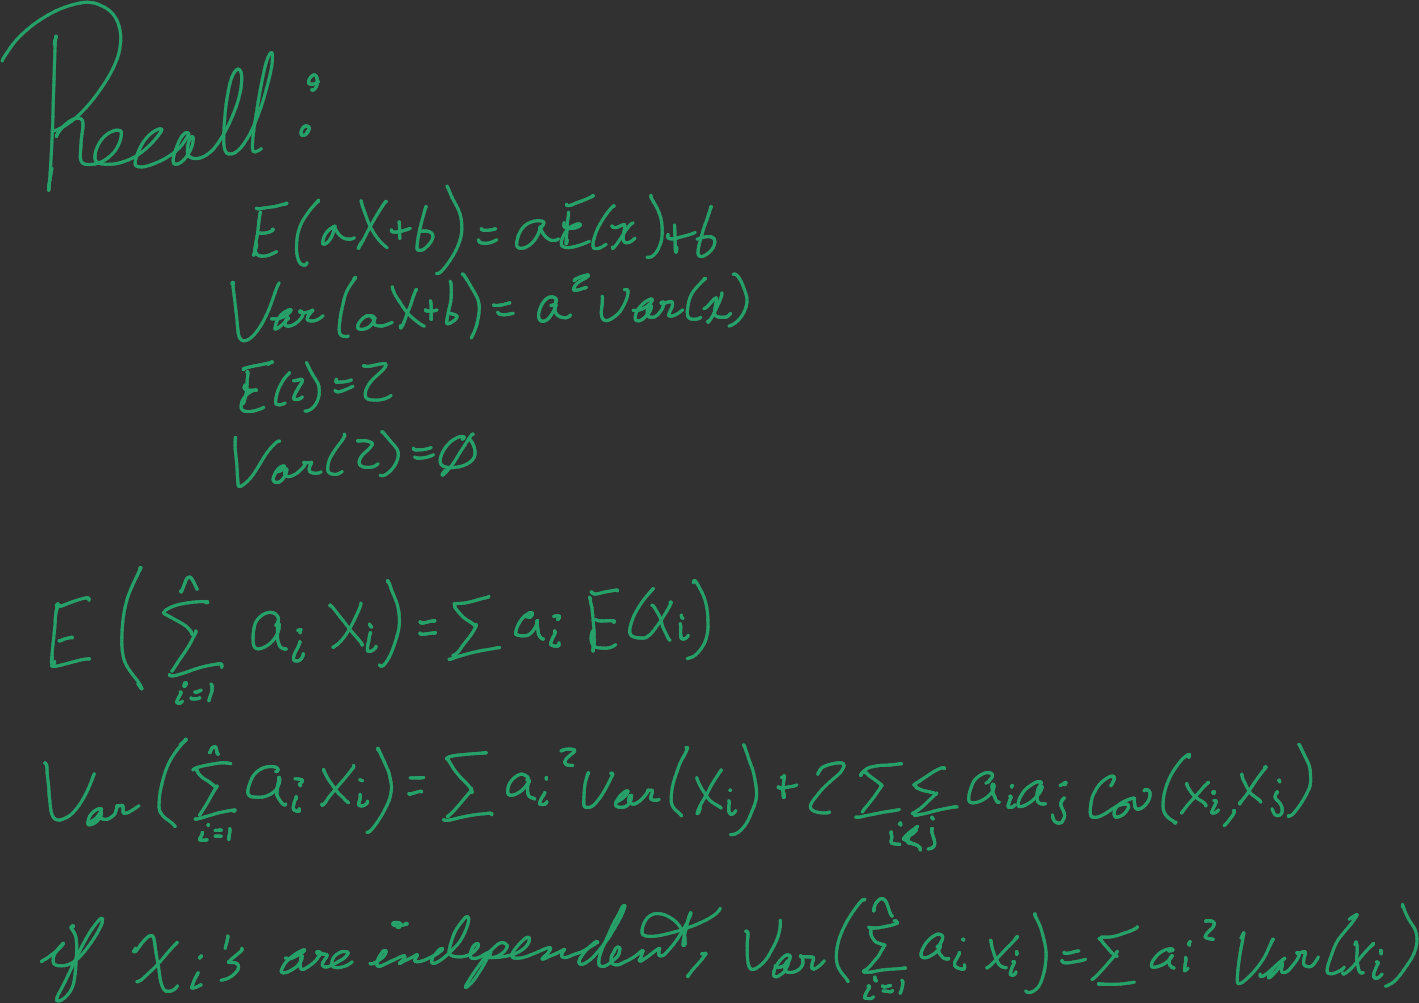 Recall:
E(aX+b)=aE(x)+b
Var(aX+b)=a²Var(x)
E(2)=2
Var(2)=∅
E(∑ᵢ₌₁ⁿ aᵢ Xᵢ)=∑ aᵢ E(Xᵢ)
Var(∑ᵢ₌₁ⁿ aᵢ Xᵢ)=∑ aᵢ² Var(Xᵢ)+2∑∑_{i<j} aᵢaⱼ Cov(Xᵢ,Xⱼ)
if Xᵢ's are independent, Var(∑ᵢ₌₁ⁿ aᵢ xᵢ)=∑ aᵢ² Var(xᵢ)